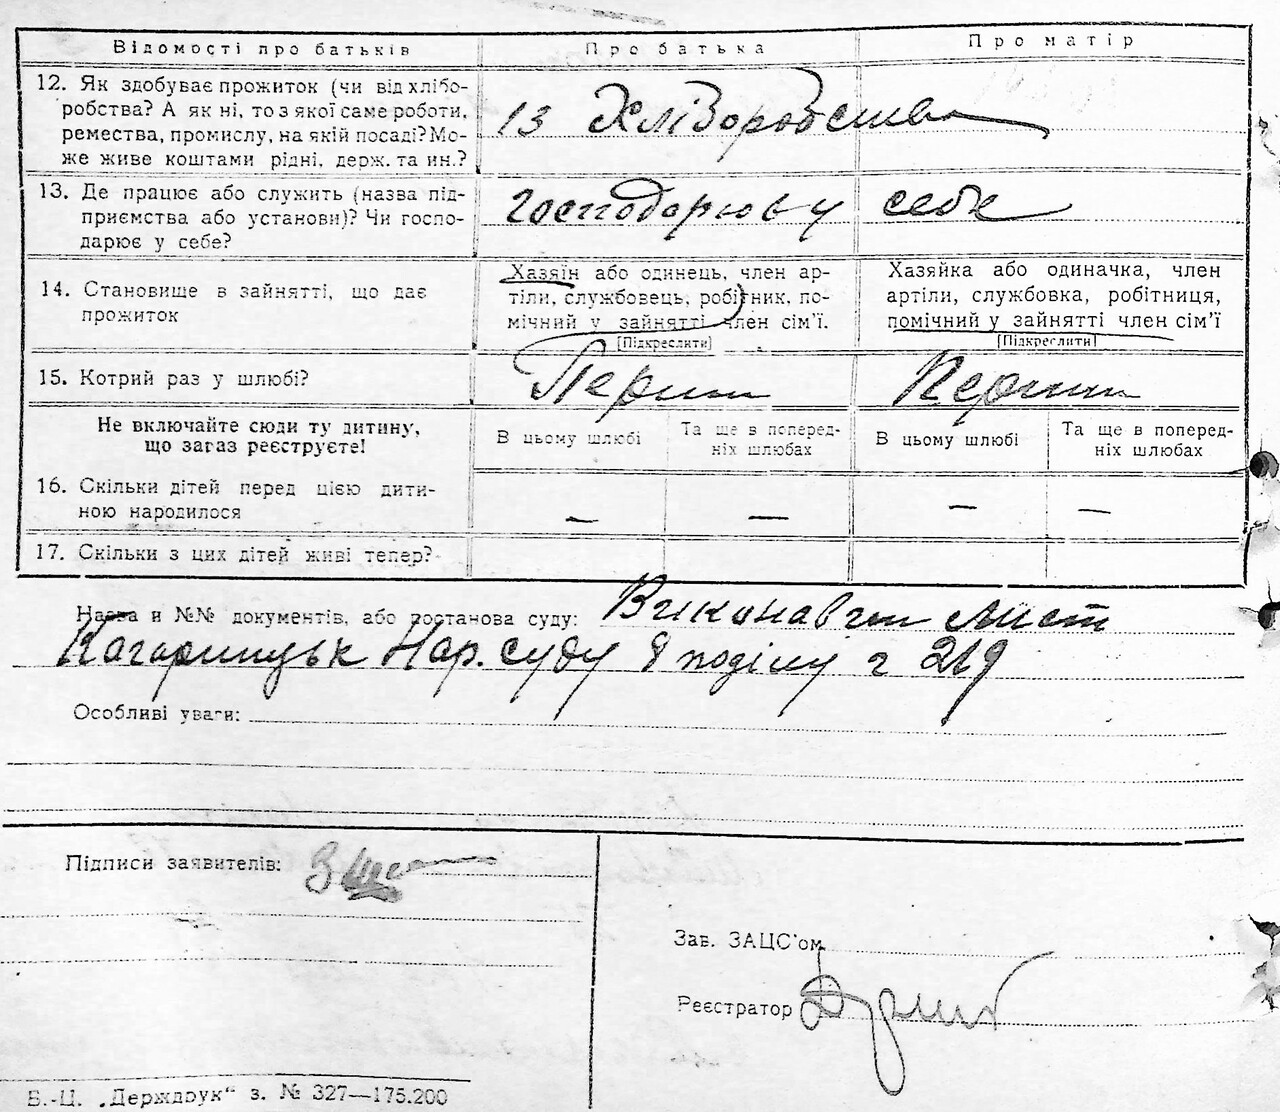 Відомості про батьків Про батька Про матір
12. Як здобуває прожиток (чи від хлібо-
робства? А як ні, то з якої саме роботи,
ремества, промислу, на якій посаді? Мо-
же живе коштами рідні, держ. та ин.?
13 Хліборобства
13. Де працює або служить (назва під-
приємства або установи)? Чи госпо-
дарює у себе?
господарюв у себе
14. Становище в зайнятті, що дає
прожиток
Хазяїн або одинець, член ар-
тіли, службовець, робітник, по-
мічний у зайнятті член сім'ї.
[Підкреслити]
Хазяйка або одиначка, член
артіли, службовка, робітниця,
помічний у зайнятті член сім'ї
[Підкреслити]
15. Котрий раз у шлюбі? Перший Перший
Не включайте сюди ту дитину,
що загаз реєструєте!
В цьому шлюбі
Та ще в поперед-
ніх шлюбах
В цьому шлюбі
Та ще в поперед-
ніх шлюбах
16. Скільки дітей перед цією дити-
ною народилося
— — — —
17. Скільки з цих дітей живі тепер?
Назва и №№ документів, або постанова суду: Виконавчий лист
Кагарлицьк Нар. суду
Особливі уваги:
Підписи заявителів:
Зав. ЗАЦС'ом
Реєстратор
Б.-Ц. „Держдрук“ з. № 327—175.200